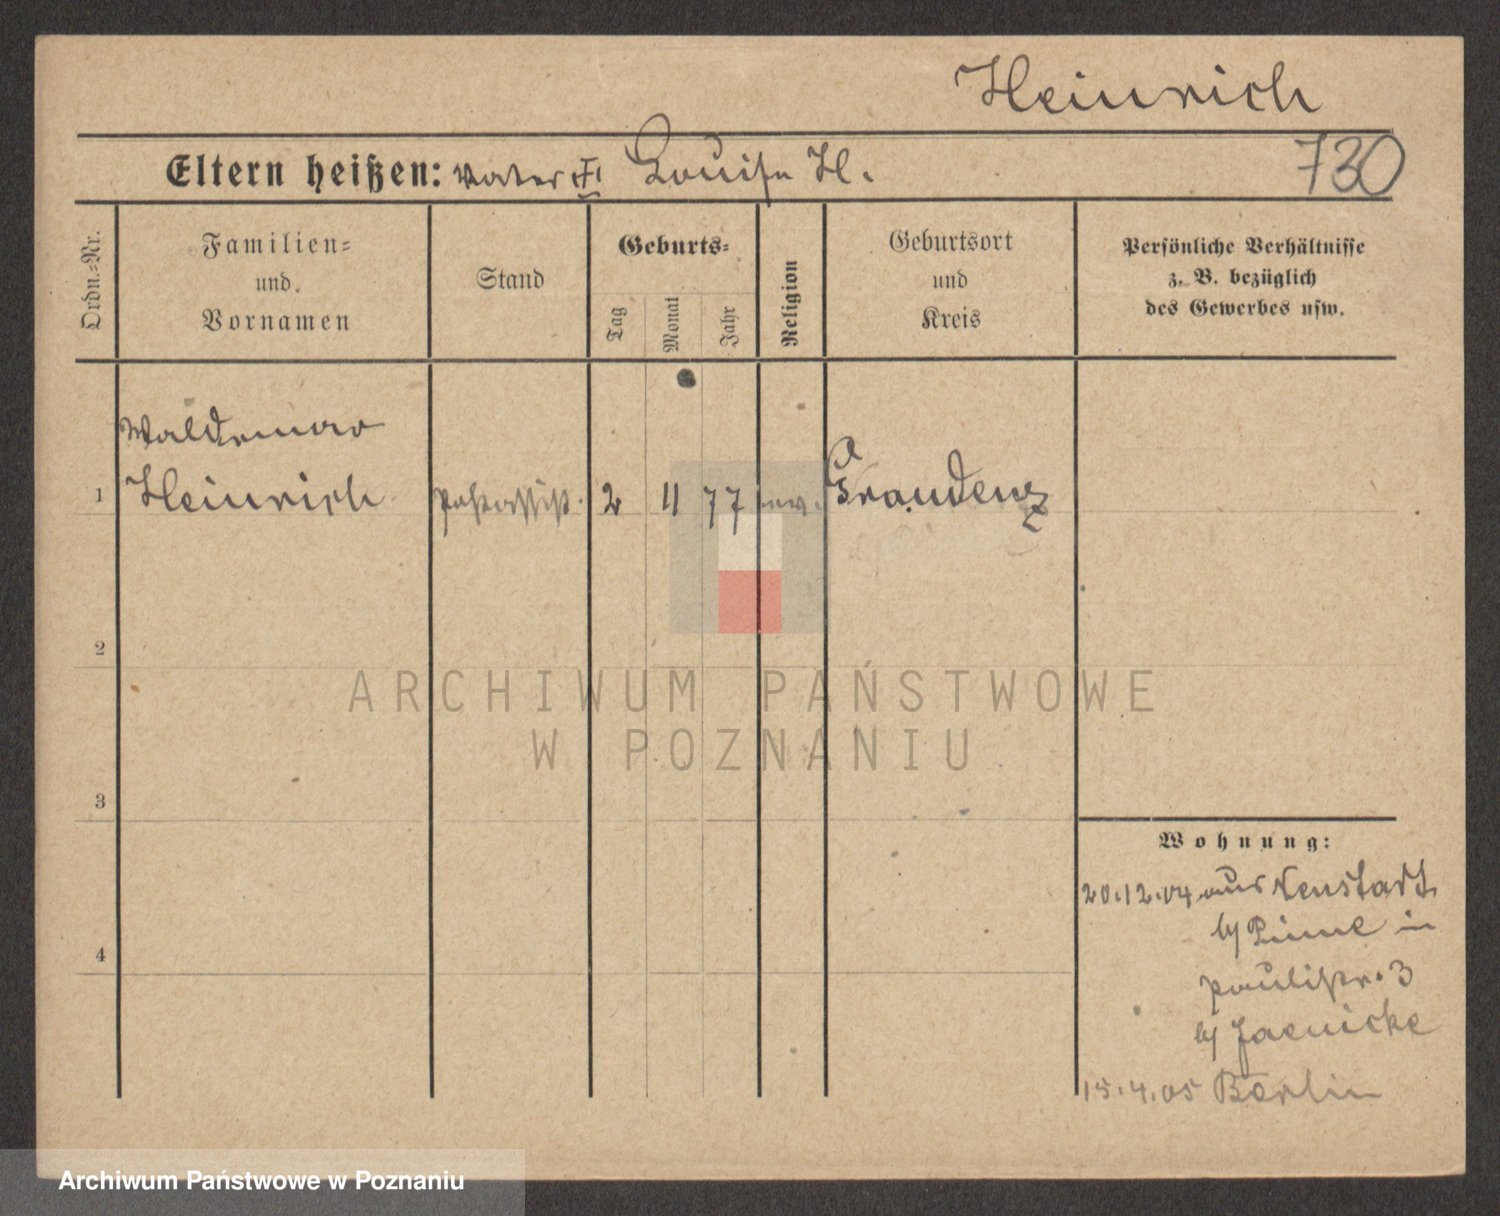 Heinrich
730
Eltern heißen: Vater † Louise H.
Ordn.=Nr.
Familien=
und
Vornamen
Stand
Geburts=
Tag
Monat
Jahr
Religion
Geburtsort
und
Kreis
Persönliche Verhältnisse
z. B. bezüglich
des Gewerbes usw.
Waldemar
1 Heinrich Postassist. 2 11 77 Graudenz
2
3
4
Wohnung:
20.12.04 aus Neustadt
b/ Pinne in
Paulistr. 3
b/ Jaenicke
15.4.05 Berlin
ARCHIWUM PAŃSTWOWE
W POZNANIU
Archiwum Państwowe w Poznaniu